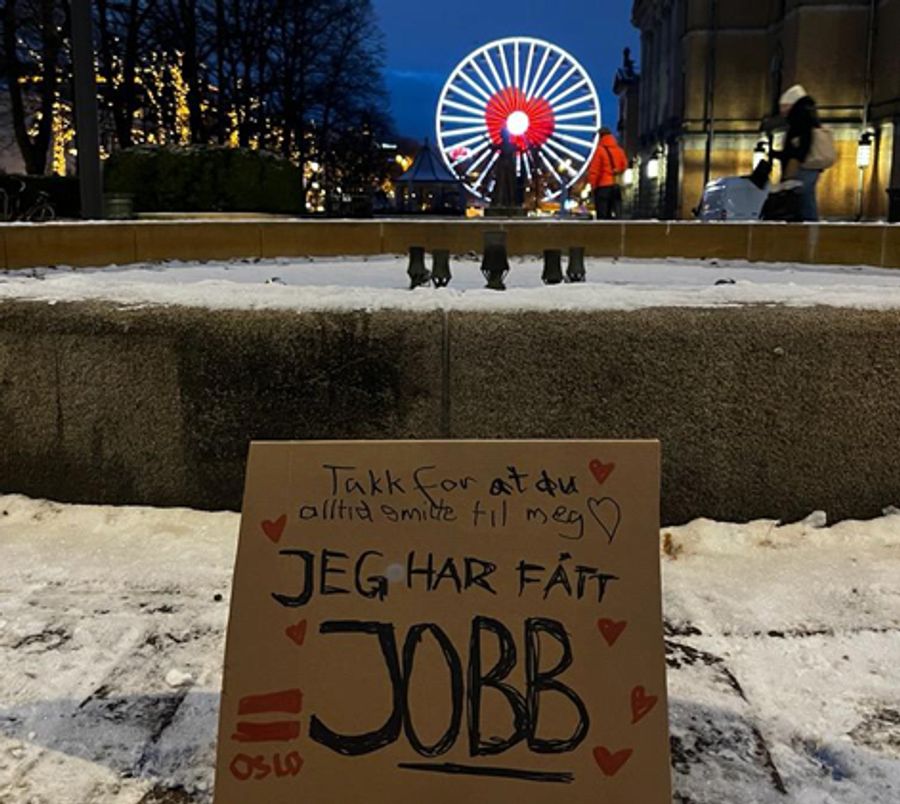 Takk for at du
alltid smilte til meg
JEG HAR FÅTT
JOBB
OSLO